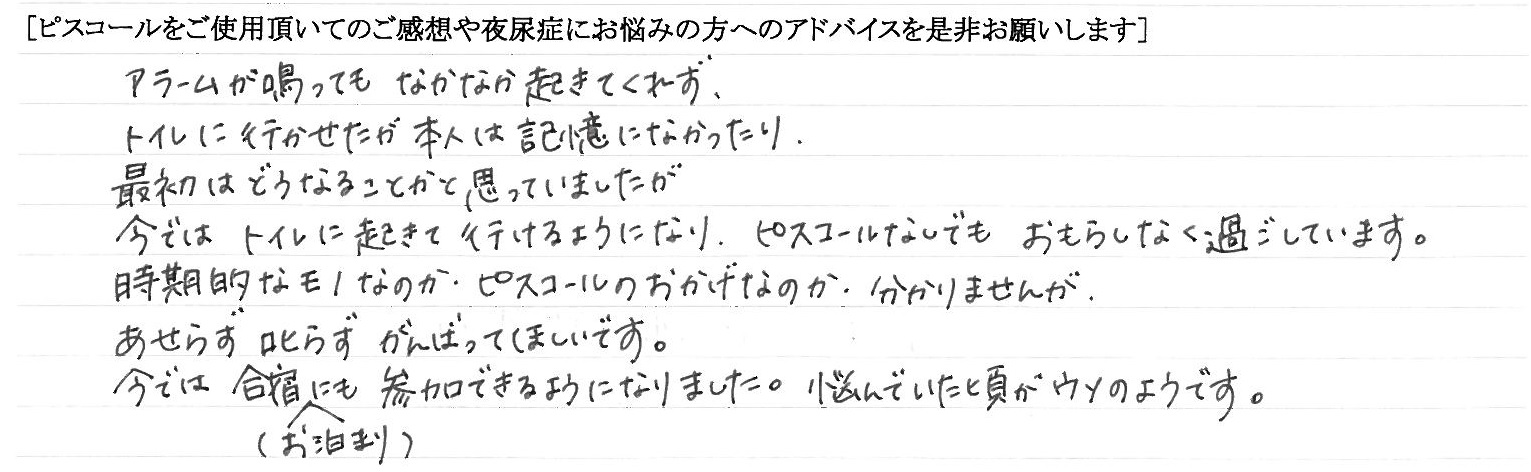 [ピスコールをご使用頂いてのご感想や夜尿症にお悩みの方へのアドバイスを是非お願いします]
アラームが鳴っても なかなか起きてくれず、
トイレに行かせたが 本人は記憶になかったり、
最初はどうなることかと思っていましたが
今では トイレに起きて行けるようになり、ピスコールなしでも おもらしなく過ごしています。
時期的なモノなのか・ピスコールのおかげなのか・分かりませんが、
あせらず 叱らず がんばってほしいです。
今では 合宿にも 参加できるようになりました。悩んでいた頃がウソのようです。
(お泊まり)